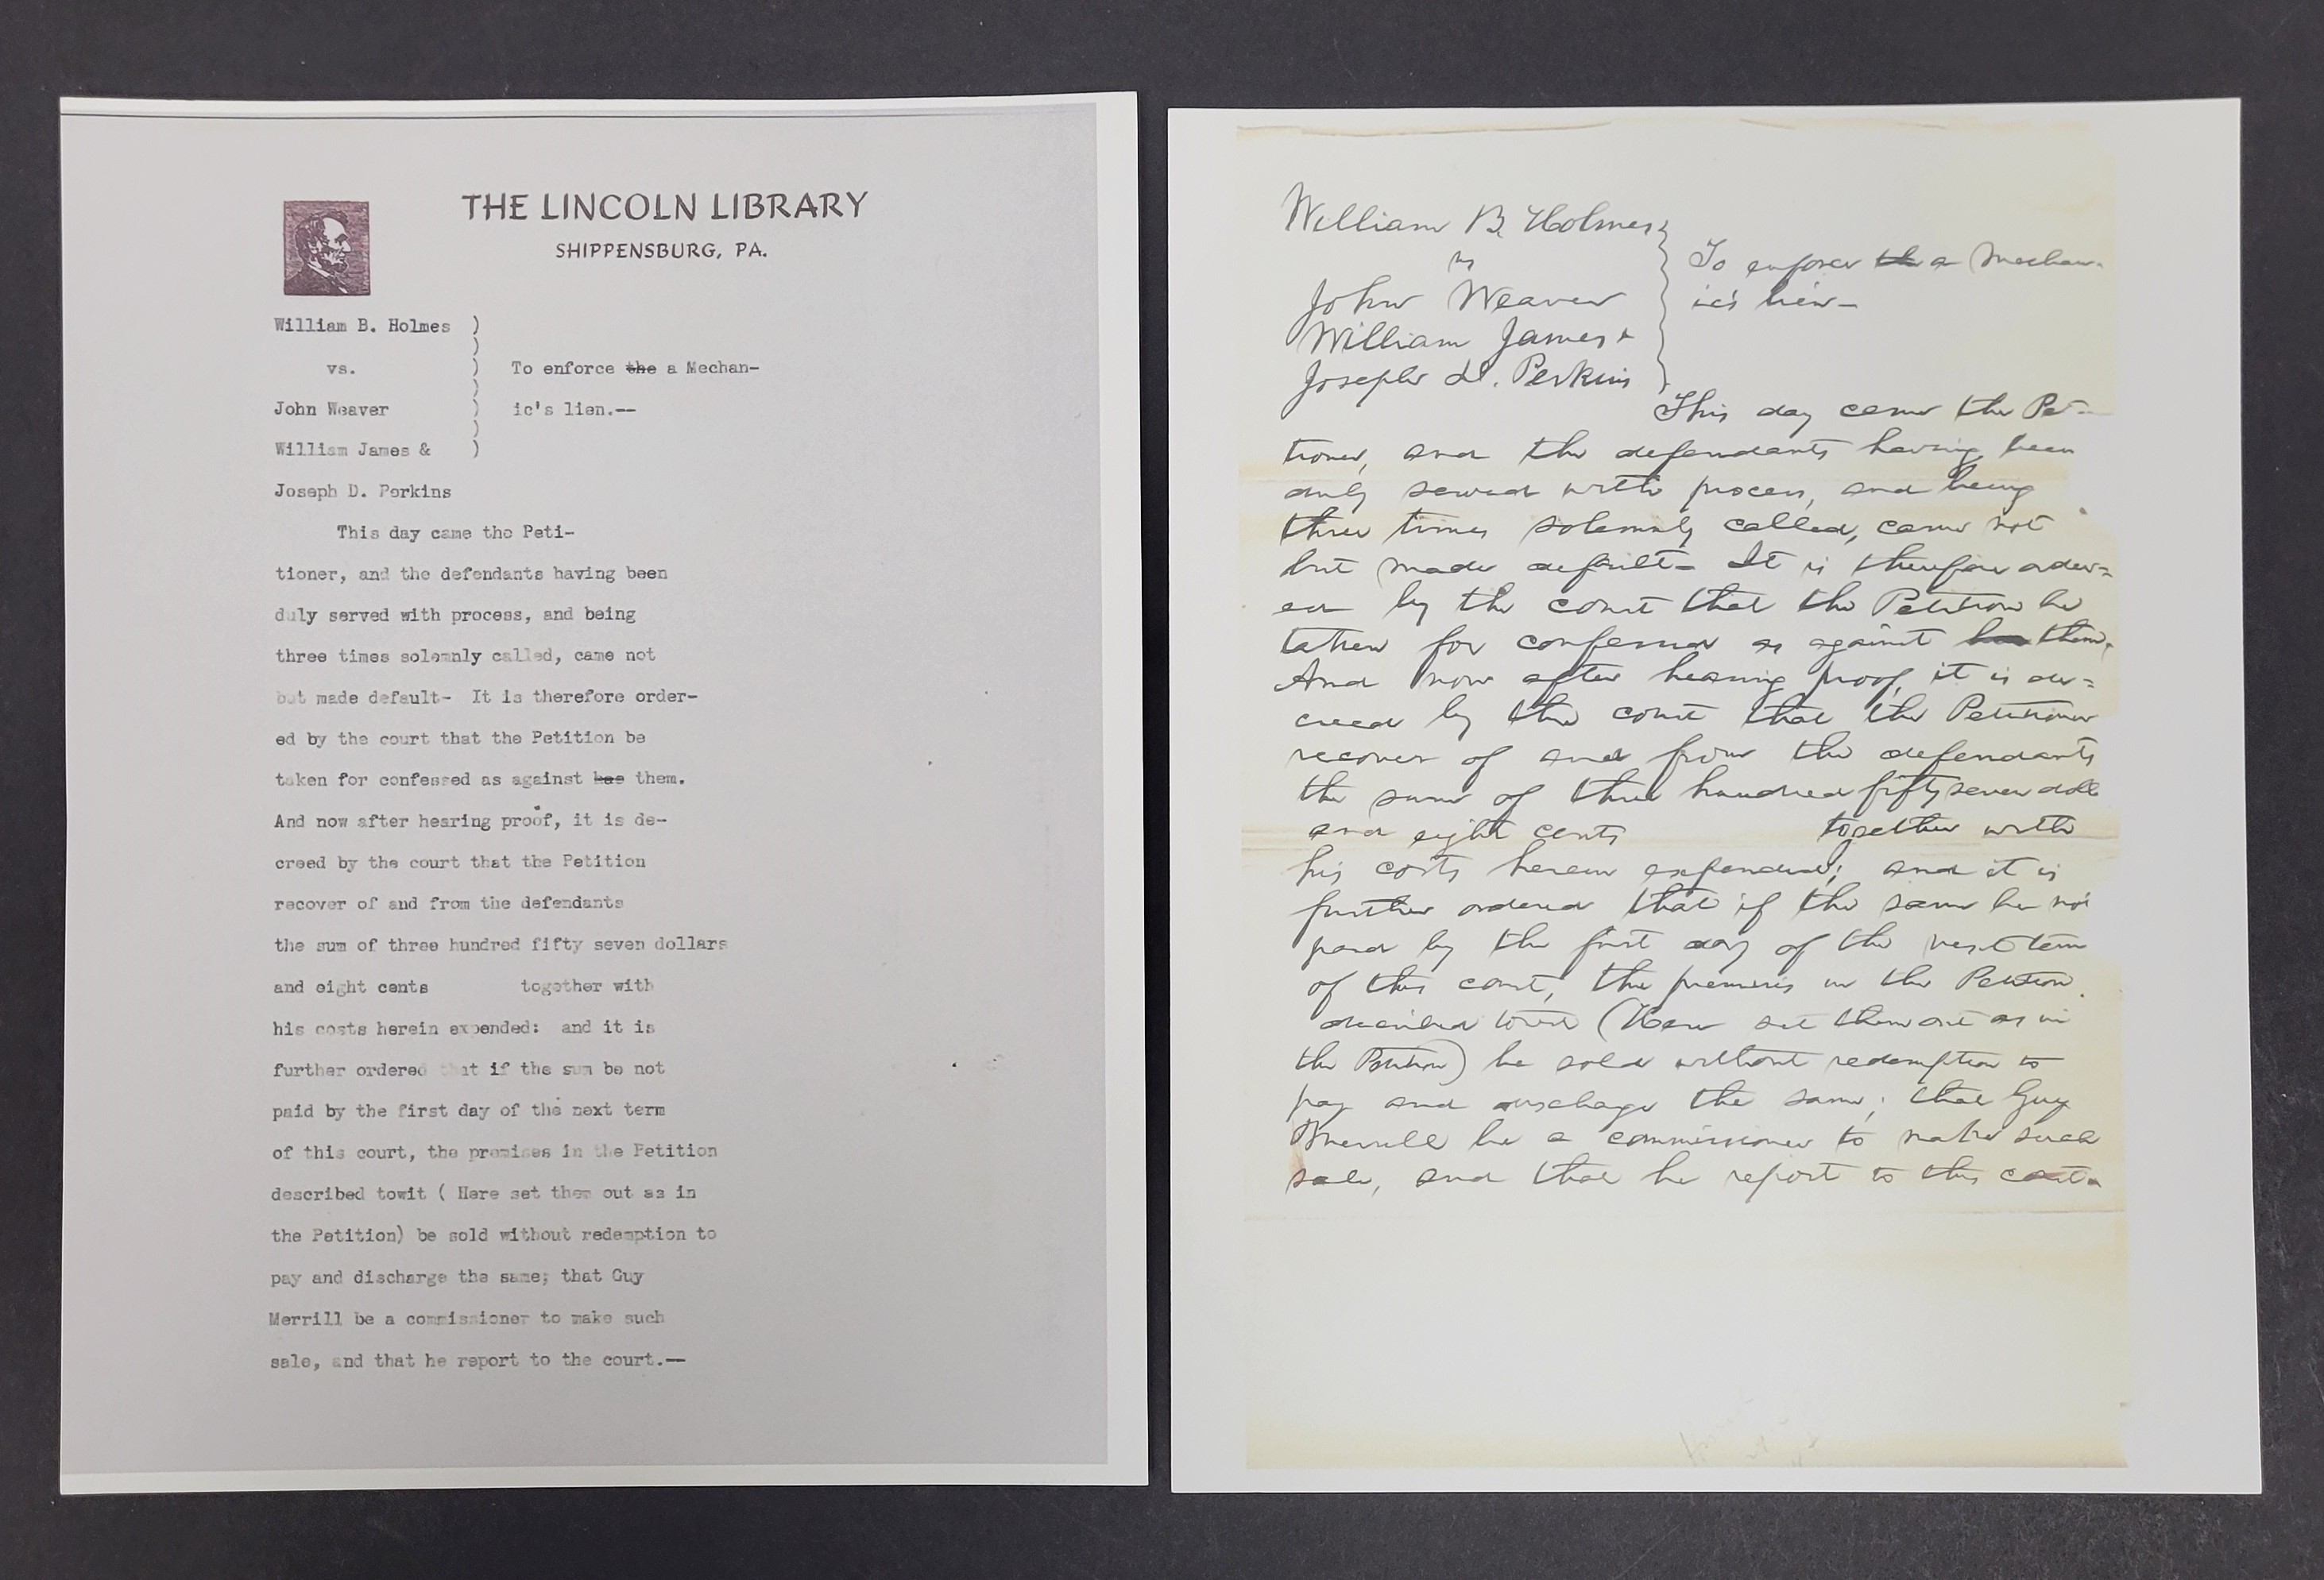 THE LINCOLN LIBRARY
SHIPPENSBURG, PA.
William B. Holmes )
vs. ) To enforce the a Mechan-
John Weaver ) ic's lien.--
William James & )
Joseph D. Perkins
This day came the Peti-
tioner, and the defendants having been
duly served with process, and being
three times solemnly called, came not
but made default- It is therefore order-
ed by the court that the Petition be
taken for confessed as against has them.
And now after hearing proof, it is de-
creed by the court that the Petition
recover of and from the defendants
the sum of three hundred fifty seven dollars
and eight cents together with
his costs herein expended: and it is
further ordered that if the sum be not
paid by the first day of the next term
of this court, the premises in the Petition
described towit ( Here set them out as in
the Petition) be sold without redemption to
pay and discharge the same; that Guy
Merrill be a commissioner to make such
sale, and that he report to the court.--
William B. Holmes
vs
John Weaver
William James &
Joseph D. Perkins
To enforce the a Mechan-
ic's lien-
This day came the Pet-
tioner, and the defendants having been
duly served with process, and being
three times solemnly called, came not
but made default- It is therefore order=
ed by the court that the Petition be
taken for confessed as against them.
And now after hearing proof, it is de=
creed by the court that the Petitioner
recover of and from the defendants
the sum of three hundred fifty seven doll
and eight cents together with
his costs herein expended; and it is
further ordered that if the same be not
paid by the first day of the next term
of this court, the premises in the Petition
described towit (Here set them out as in
the Petition) be sold without redemption to
pay and discharge the same; that Guy
Merrill be a commissioner to make such
sale, and that he report to this court-